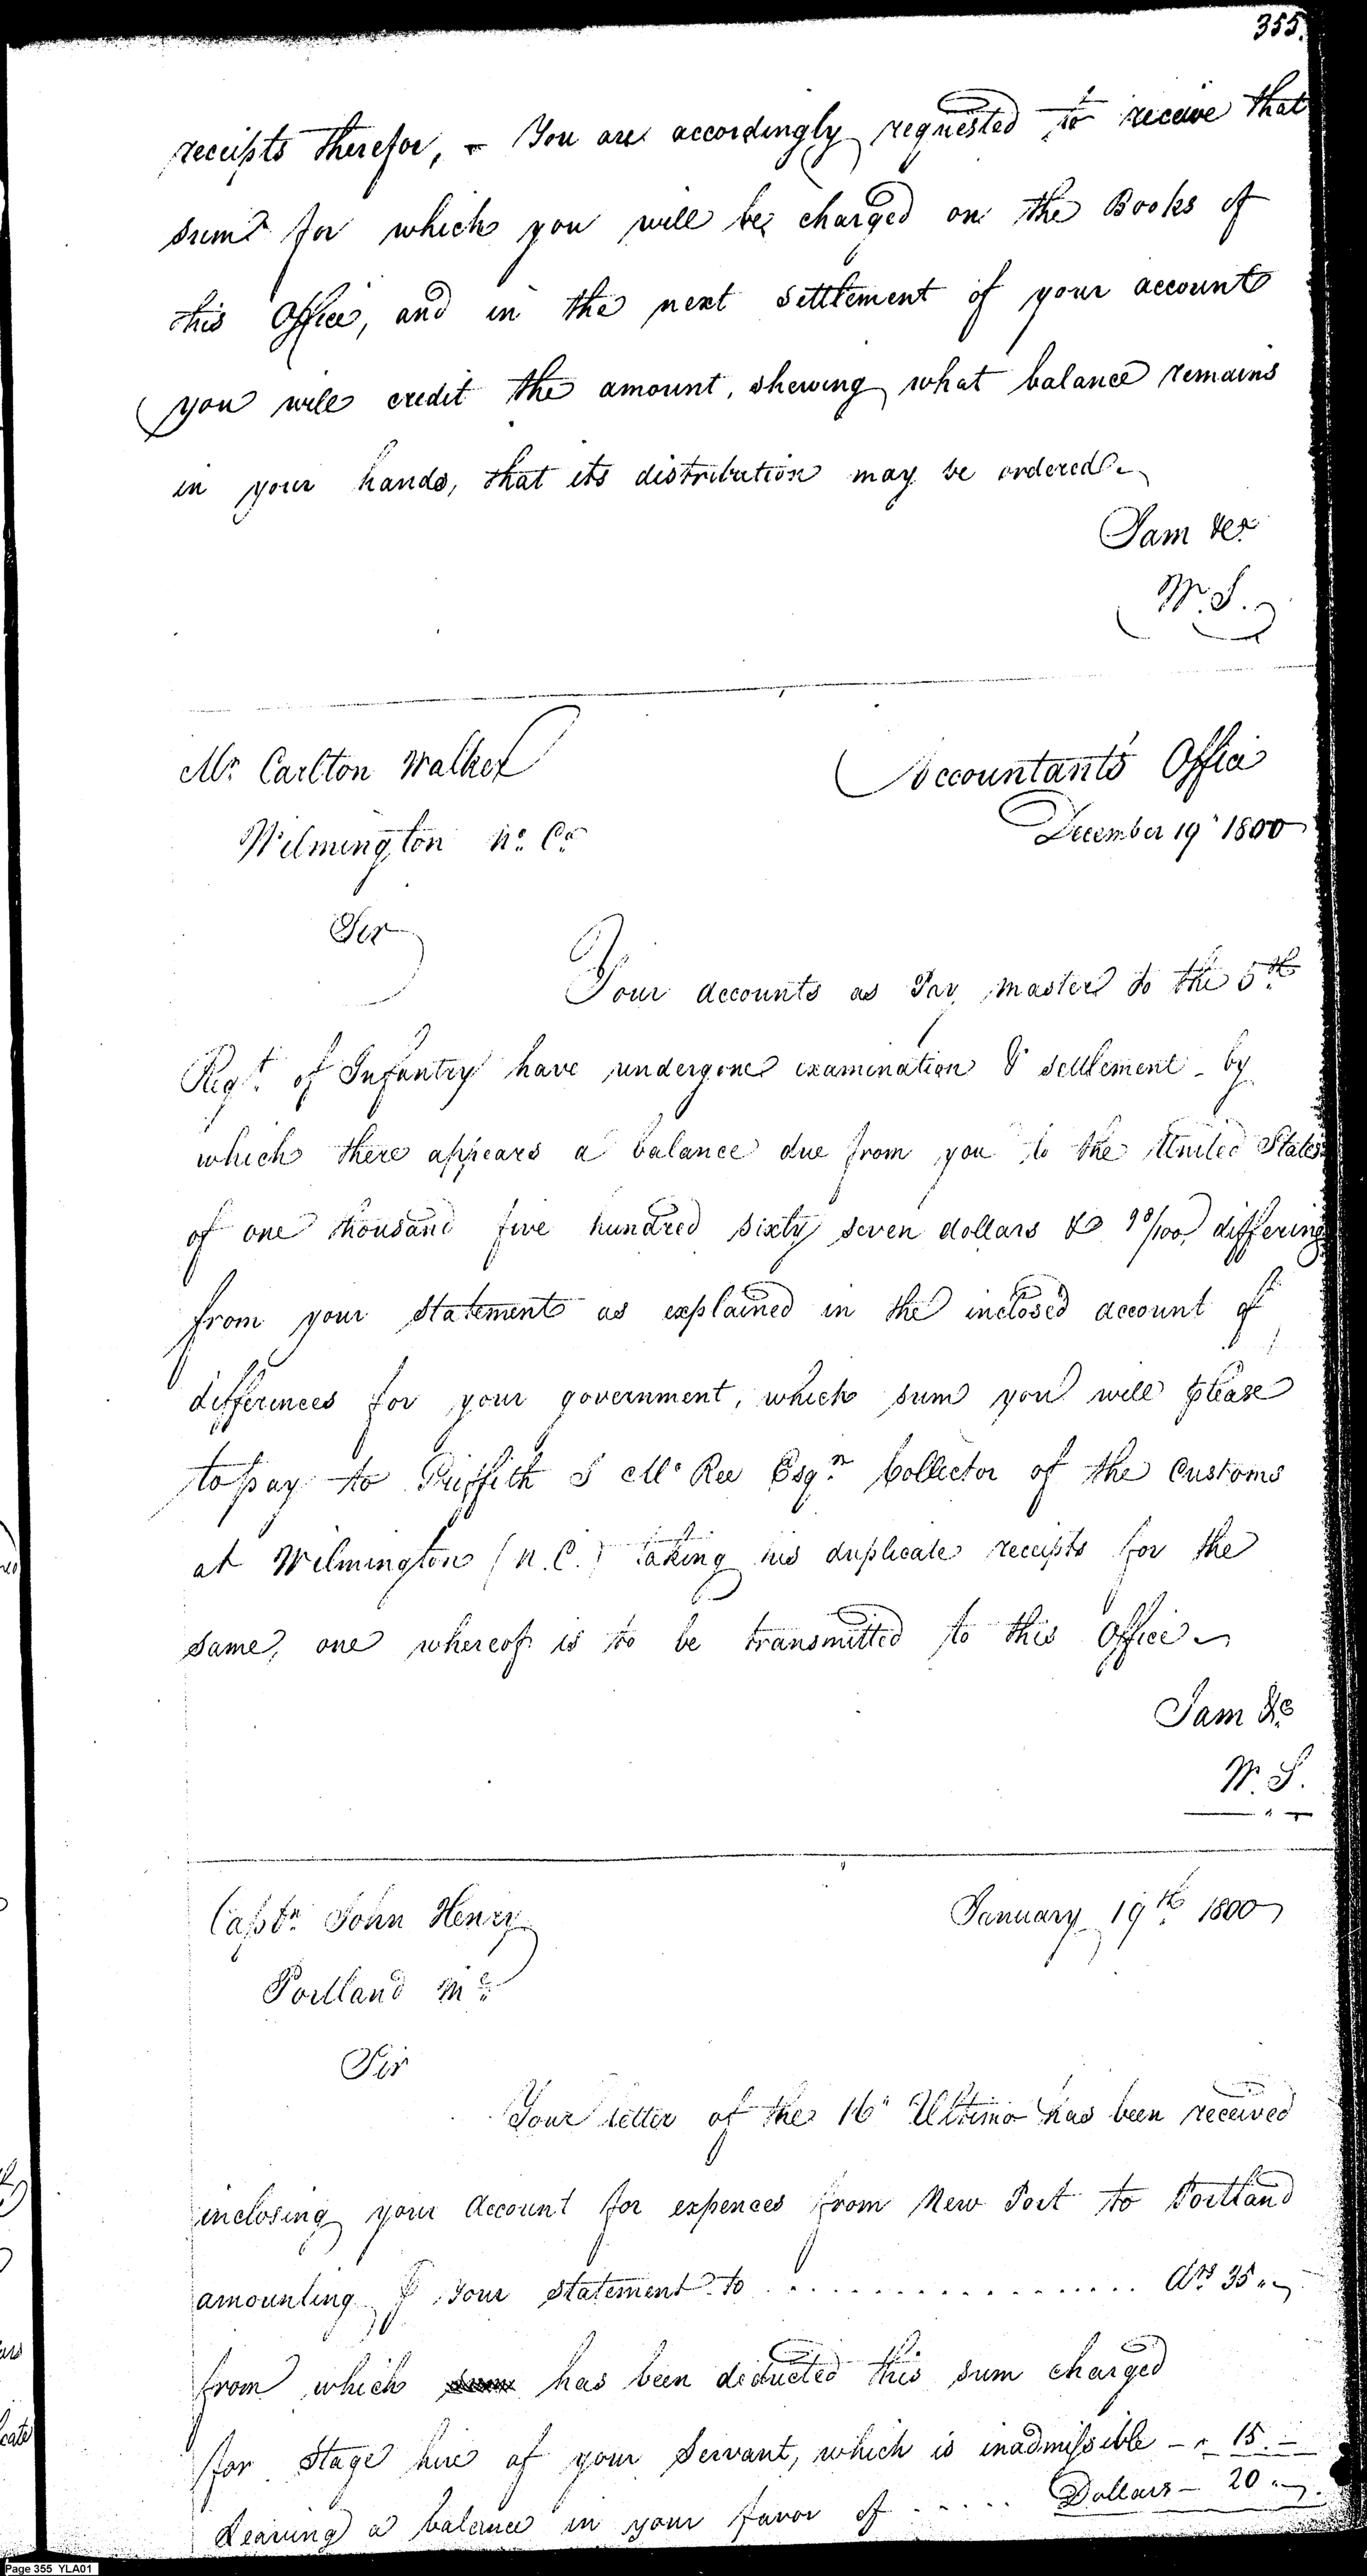 355.
receipts therefor, - You are accordingly requested to receive that
sum for which you will be charged on the Books of
this Office, and in the next settlement of your accounts
you will credit the amount, shewing what balance remains
in your hands, that its distribution may be ordered.
I am &c.
W. S.
Mr. Carlton Walker
Wilmington No. Ca.
Accountants Office
December 19th 1800
Sir
Your accounts as Pay master to the 5th
Regt. of Infantry have undergone examination & settlement - by
which there appears a balance due from you to the United States
of one thousand five hundred sixty seven dollars & 98/100, differing
from your statement as explained in the inclosed account of
differences for your government, which sum you will please
to pay to Griffith J McRee Esqr. Collector of the Customs
at Wilmington (N.C.) taking his duplicate receipts for the
same, one whereof is to be transmitted to this Office.
I am &c
W. S.
Captn. John Henry
Portland Me.
January 19th 1800
Sir
Your letter of the 16th Ultimo has been received
inclosing your Account for expences from New Port to Portland
amounting your statement to ................ Drs 35 "
from which has been deducted this sum charged
for Stage hire of your Servant, which is inadmissible - " 15. -
Leaving a balance in your favor of ..... Dollars - 20 "
Page 355 YLA01